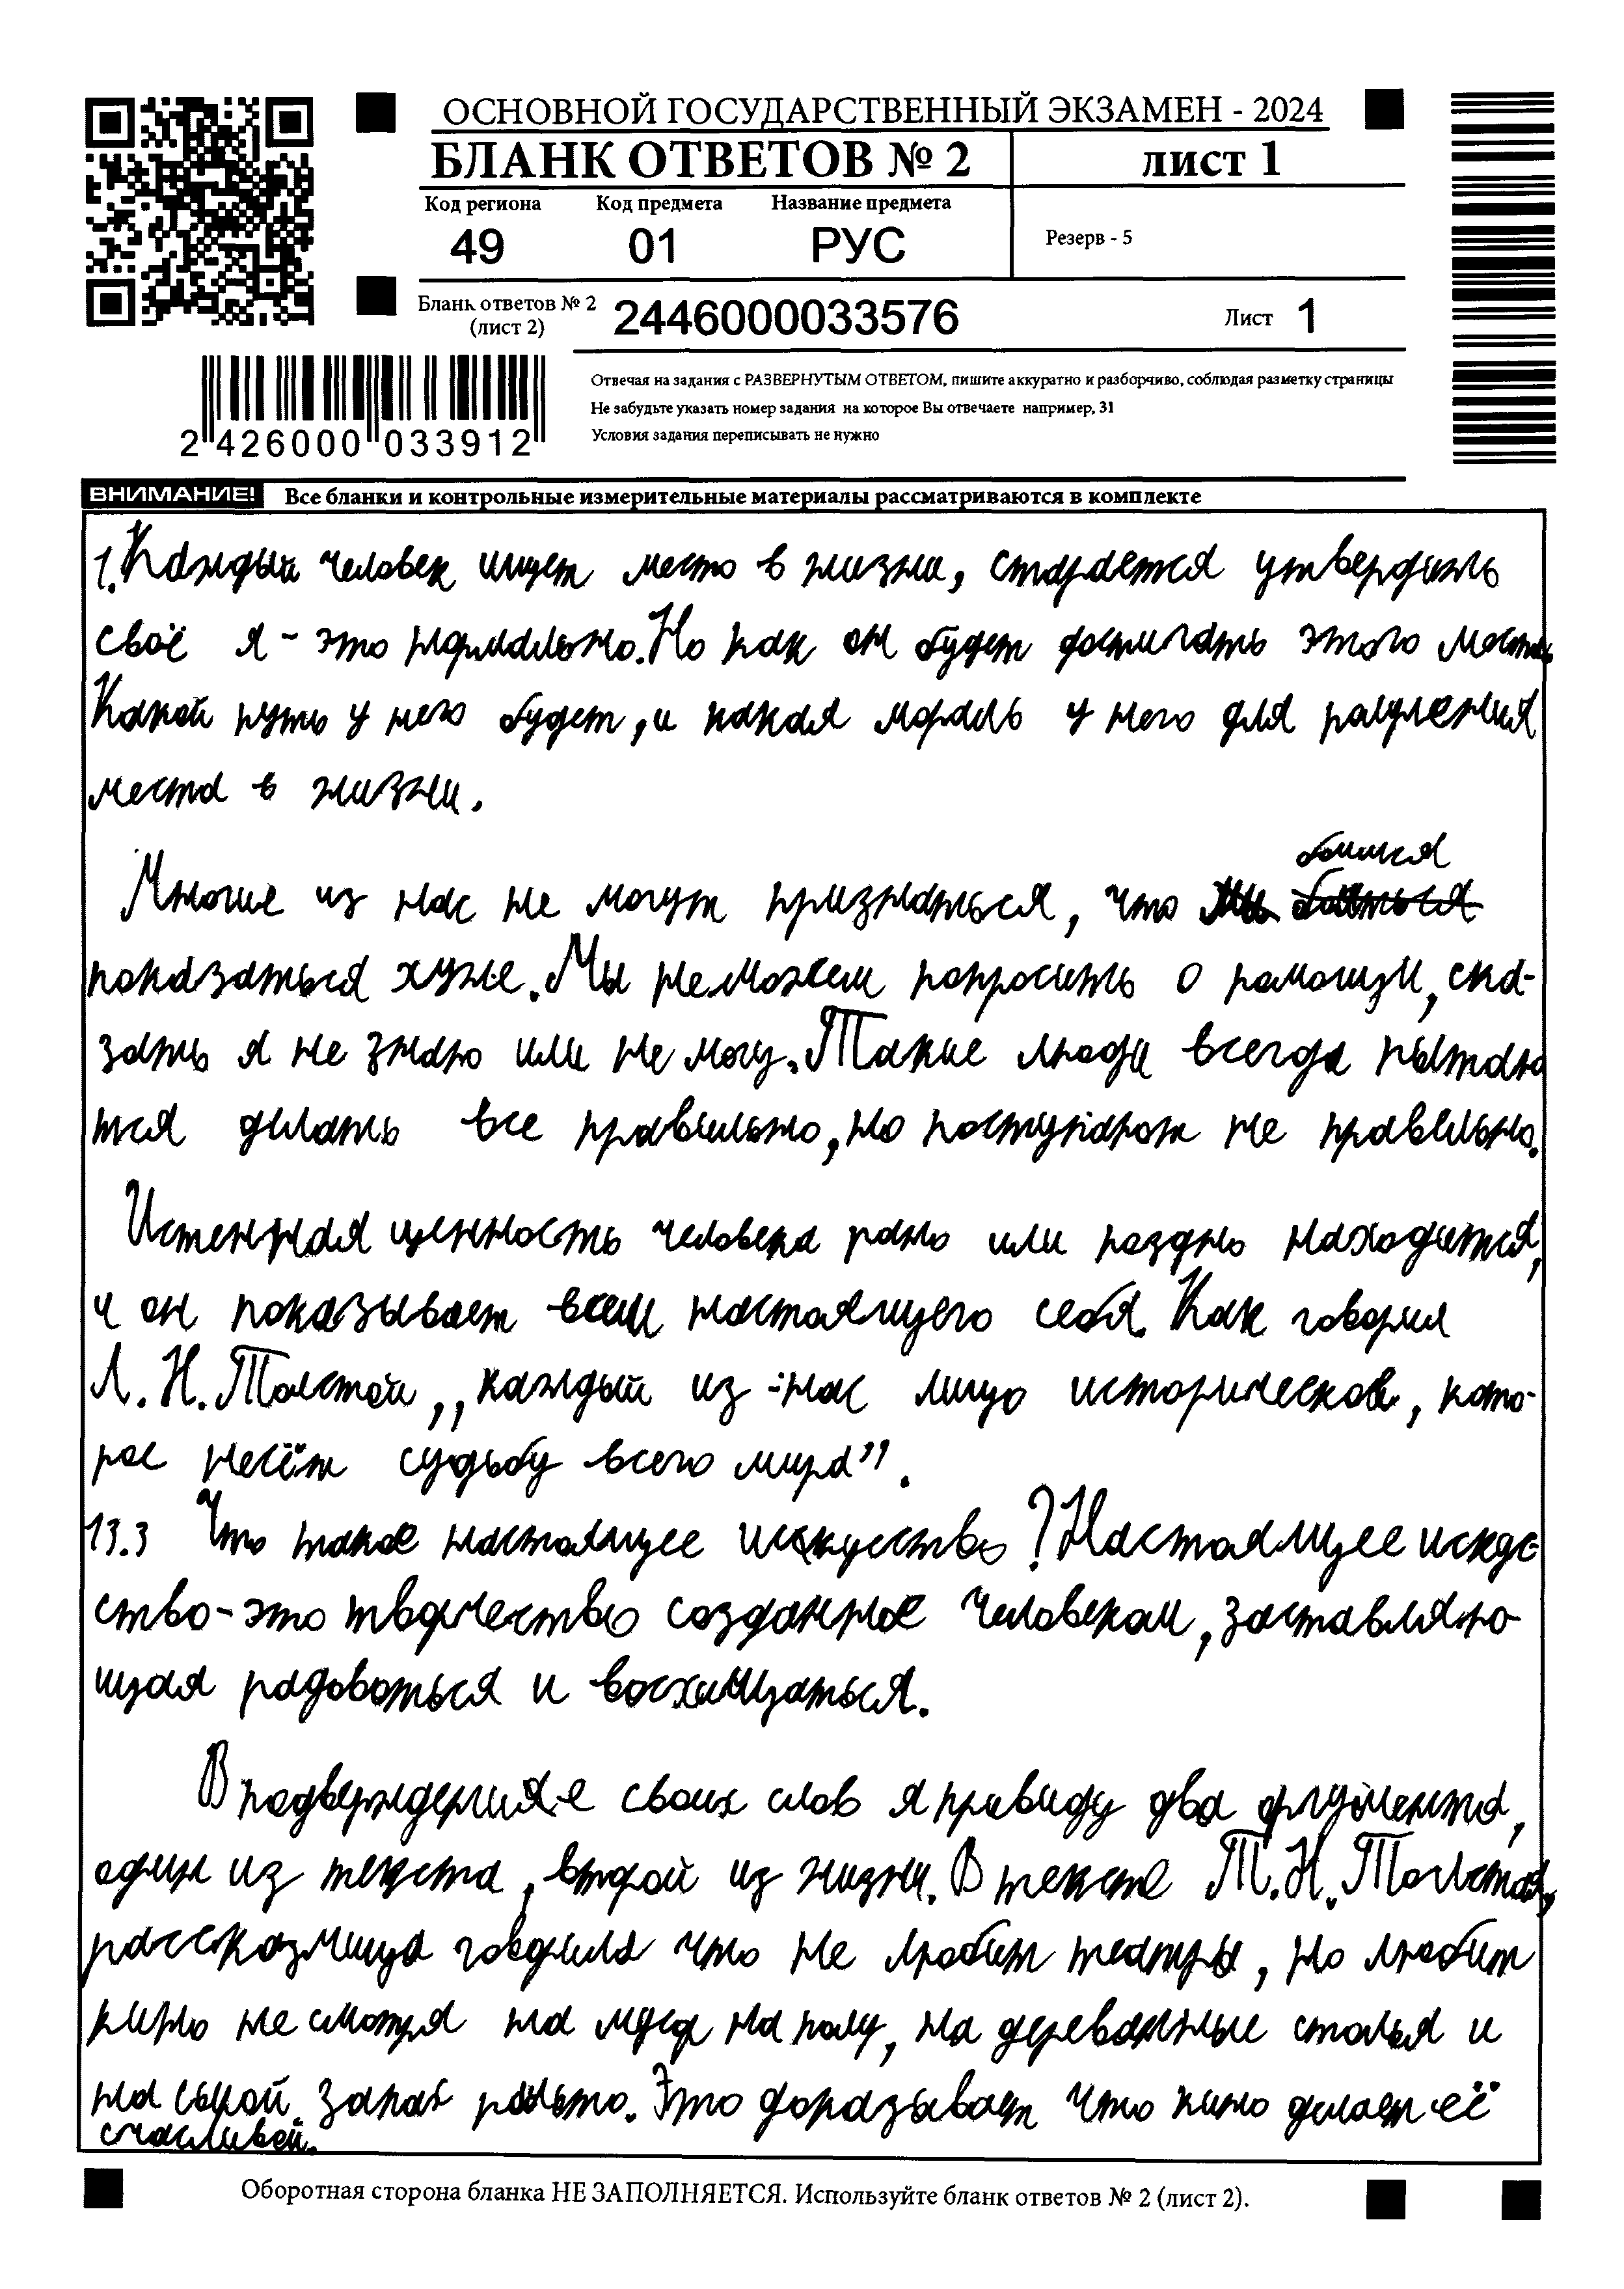 ОСНОВНОЙ ГОСУДАРСТВЕННЫЙ ЭКЗАМЕН - 2024
БЛАНК ОТВЕТОВ № 2
лист 1
Код региона
Код предмета
Название предмета
49
01
РУС
Резерв - 5
Бланк ответов № 2
(лист 2)
2446000033576
Лист 1
2 426000 033912
Отвечая на задания с РАЗВЕРНУТЫМ ОТВЕТОМ, пишите аккуратно и разборчиво, соблюдая разметку страницы
Не забудьте указать номер задания на которое Вы отвечаете например, 31
Условия задания переписывать не нужно
ВНИМАНИЕ! Все бланки и контрольные измерительные материалы рассматриваются в комплекте
1. Каждый человек ищет место в жизни, старается утвердить
своё я - это нормально. Но как он будет достигать этого места.
Какой путь у него будет, и какая мораль у него для получения
места в жизни.
боимся
Многие из нас не могут признаться, что мы бояться
показаться хуже. Мы неможем попросить о помощи, ска-
зать я не знаю или не могу. Такие люди всегда пытаю
тся делать все правильно, но поступают не правильно.
Истенная ценность человека рано или поздно находится,
и он показывает всем настоящего себя. Как говорил
Л. Н. Толстой ,,каждый из нас лицо историческое, кото-
рое несёт судьбу всего мира".
13.3 Что такое настоящее искуство? Настоящее искус
ство-это творчество созданное человеком, заставляю-
щая радоваться и восхищаться.
В подверждение своих слов я приведу два аргумента,
один из текста, второй из жизни. В тексте Т.Н. Толстой,
рассказчица говорила что не любит театры, но любит
кино не смотря на мусор на полу, на деревянные стулья и
на сырой запах пальто. Это доказывает что кино делает её
счасливей.
Оборотная сторона бланка НЕ ЗАПОЛНЯЕТСЯ. Используйте бланк ответов № 2 (лист 2).